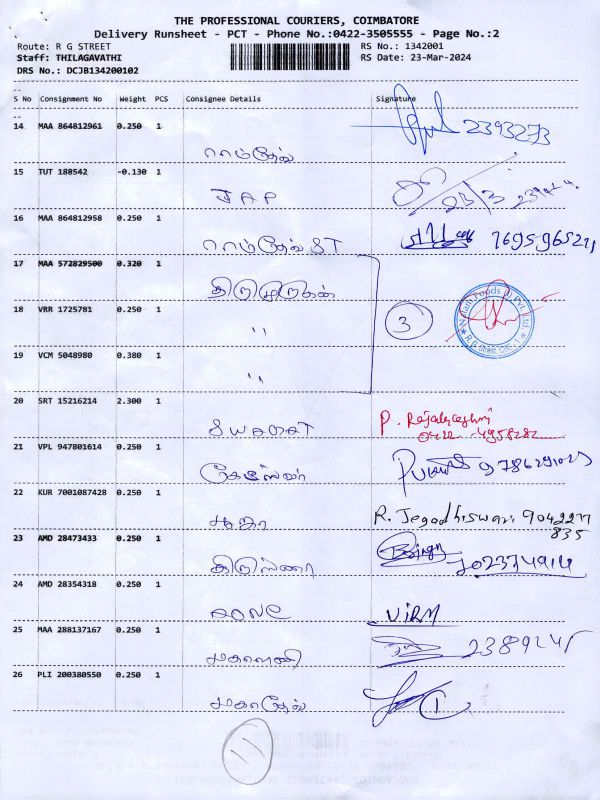 THE PROFESSIONAL COURIERS, COIMBATORE
Delivery Runsheet - PCT - Phone No.:0422-3505555 - Page No.:2
Route: R G STREET RS No.: 1342001
Staff: THILAGAVATHI RS Date: 23-Mar-2024
DRS No.: DCJB134200102
S No Consignment No Weight PCS Consignee Details Signature
14 MAA 864812961 0.250 1
ராம்தேவ் 2393273
15 TUT 188542 -0.130 1
JAP 23/3
16 MAA 864812958 0.250 1
ராம்தேவ் ST 7695965211
17 MAA 572829500 0.320 1
திருமுருகன்
18 VRR 1725781 0.250 1
" 3
Nalam Foods (I) Pvt. Ltd
R G Street, Cbe - 1
19 VCM 5048980 0.380 1
"
20 SRT 15216214 2.300 1
P. Rajalakshmi
0422 - 4958282
21 VPL 947801614 0.250 1
22 KUR 7001087428 0.250 1
பூஜா R. Jegadhiswari 9042277
835
23 AMD 28473433 0.250 1
7023774914
24 AMD 28354318 0.250 1
VIRM
25 MAA 288137167 0.250 1
26 PLI 200380550 0.250 1
மகாதேவ் 1
11